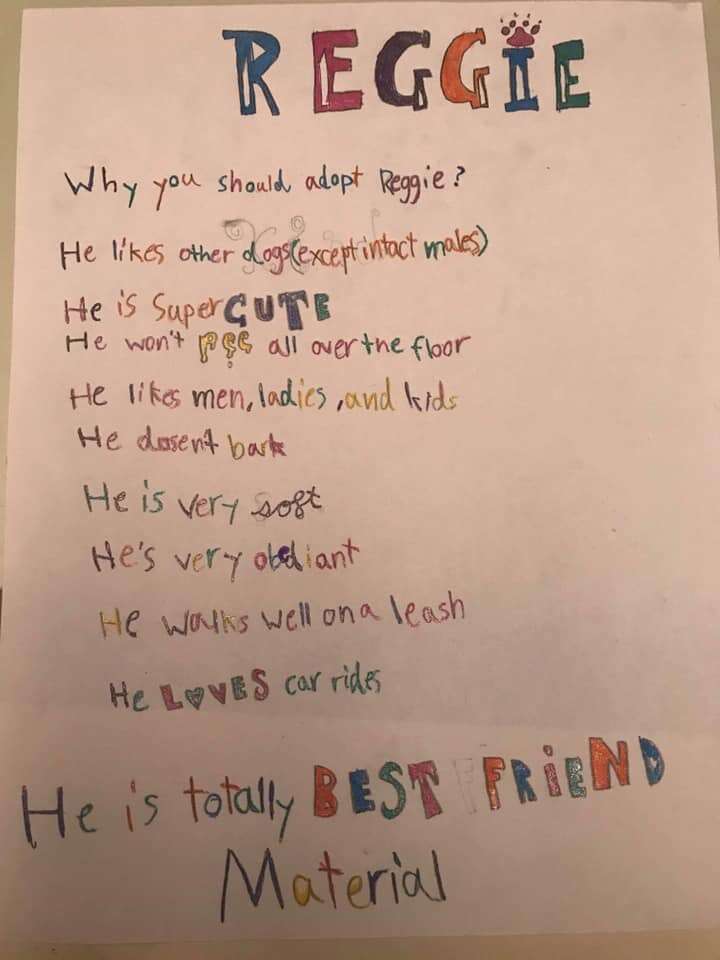 REGGIE
Why you should adopt Reggie?
He likes other dogs(except intact males)
He is Super CUTE
He won't pee all over the floor
He likes men, ladies, and kids
He dosent bark
He is very soft
He's very obediant
He walks well on a leash
He LOVES car rides
He is totally BEST FRiEND
Material